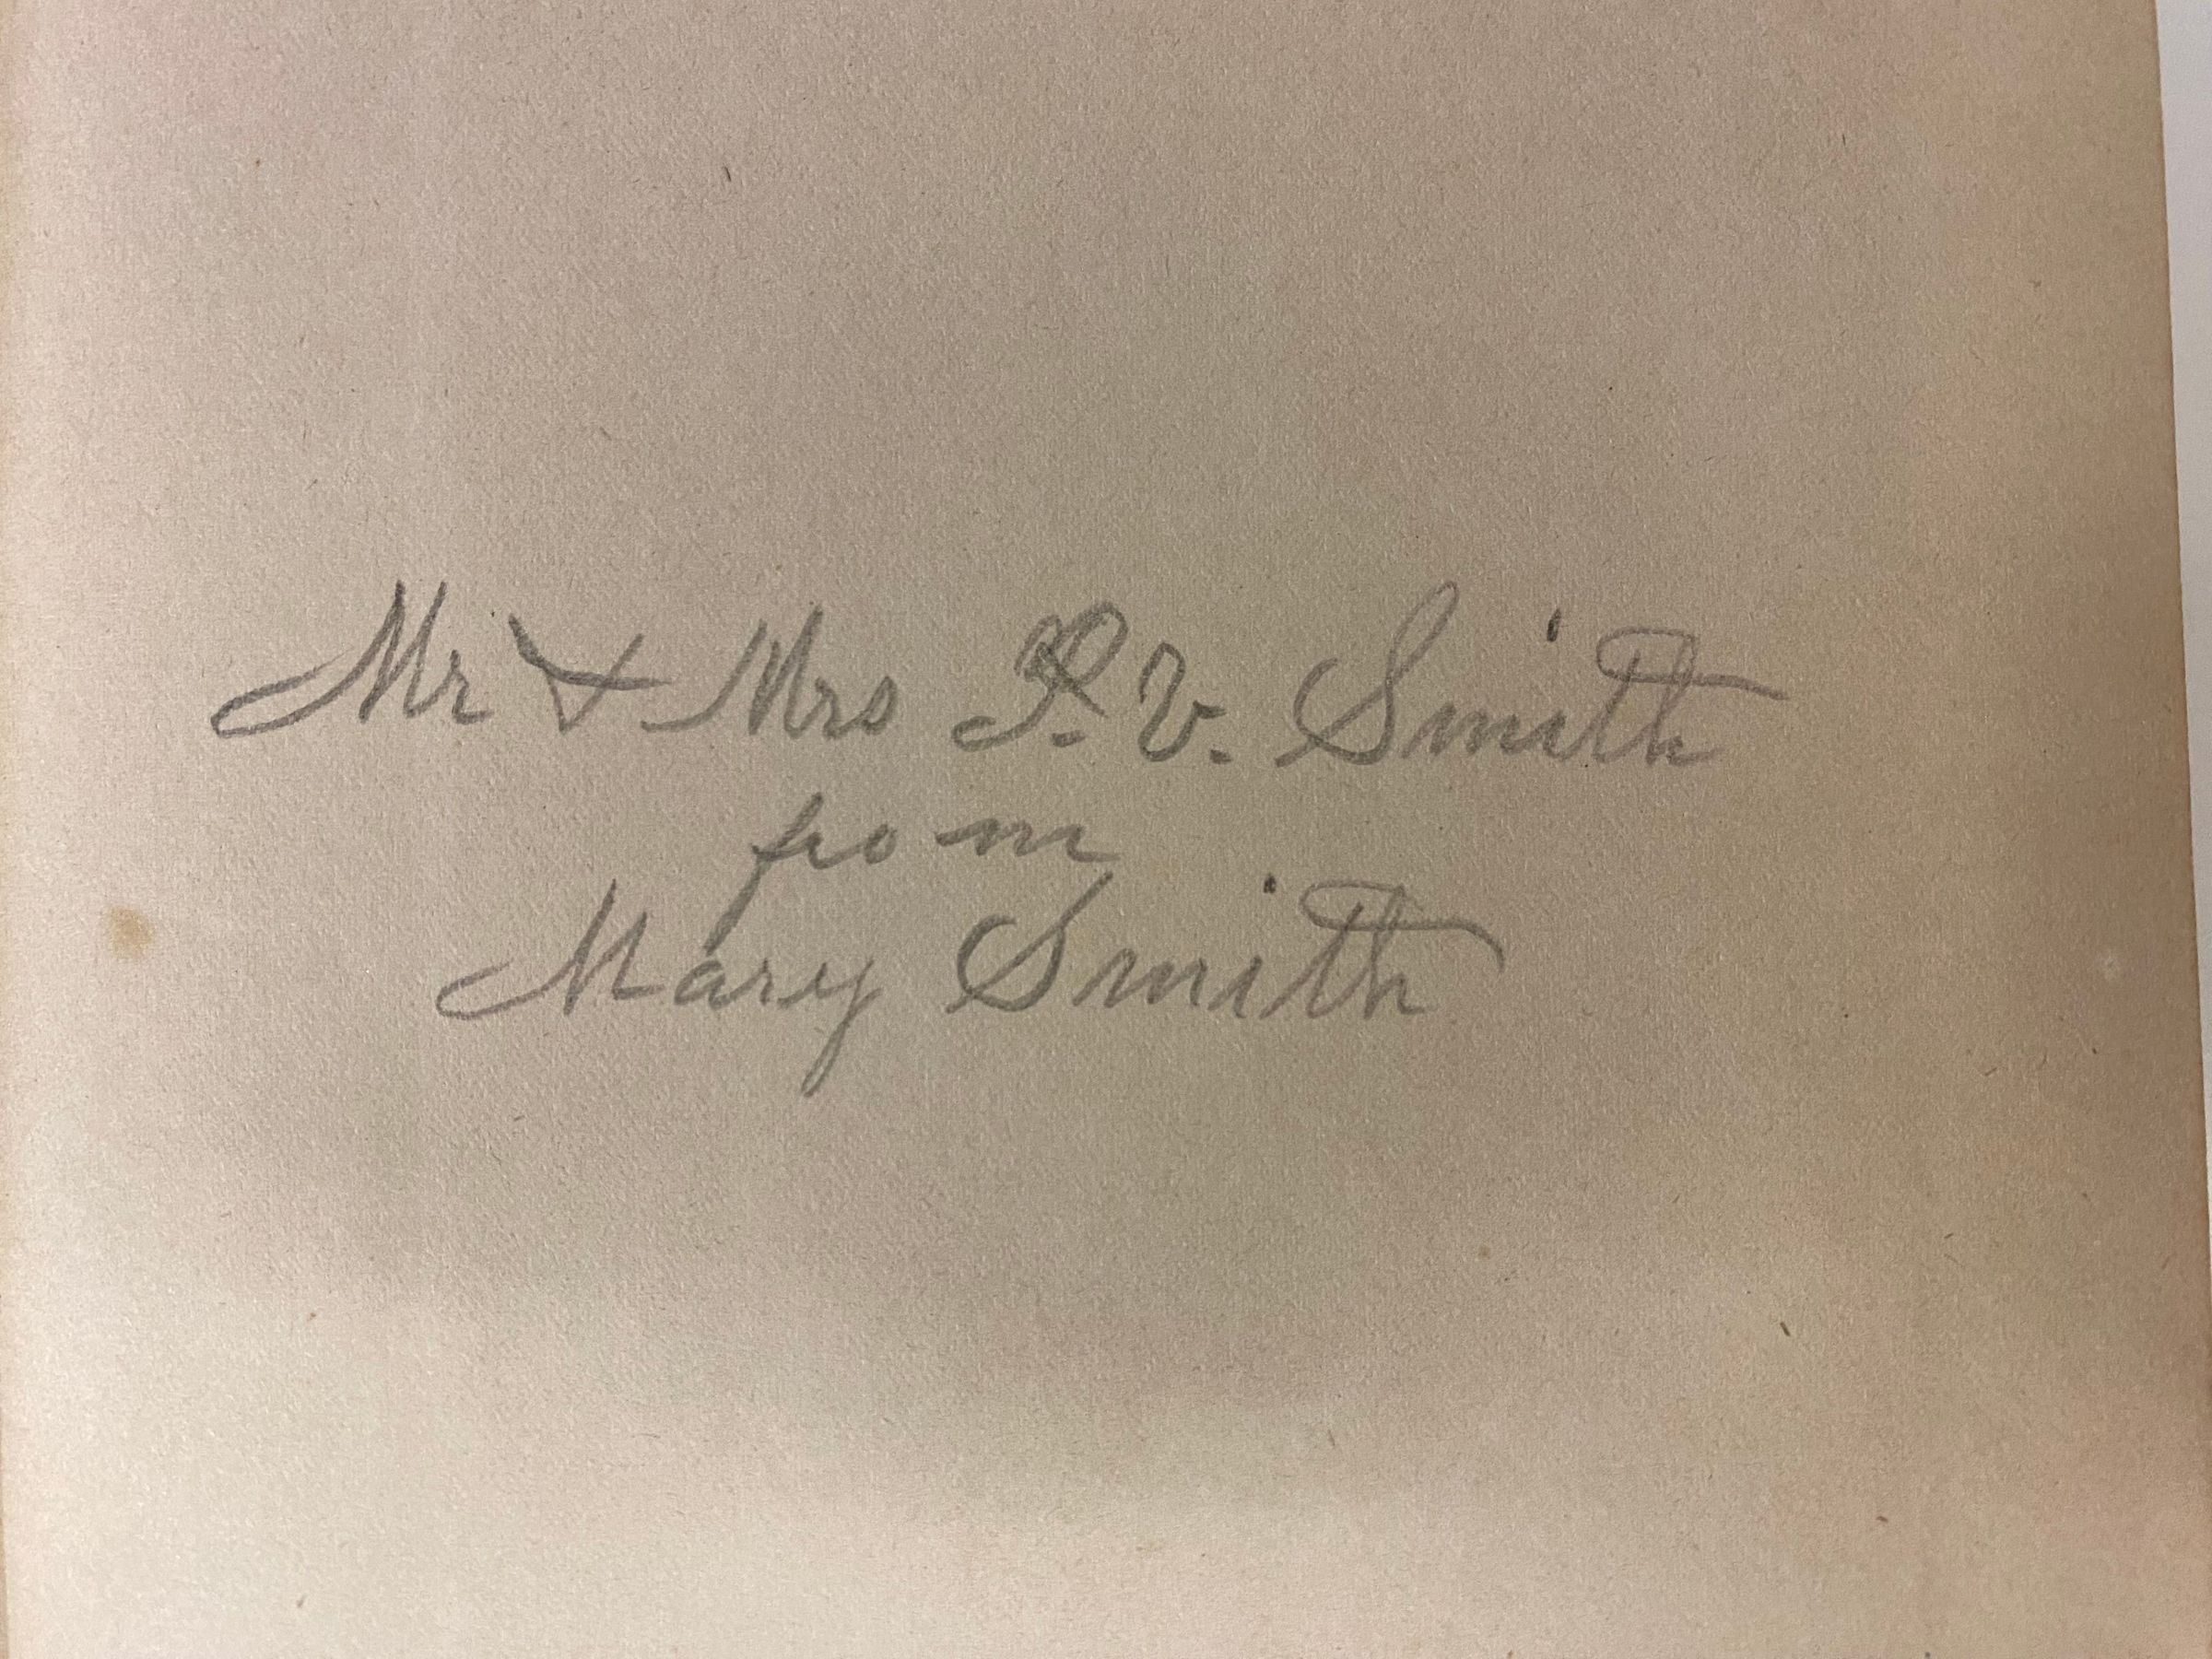 Mr & Mrs P. V. Smith
from
Mary Smith